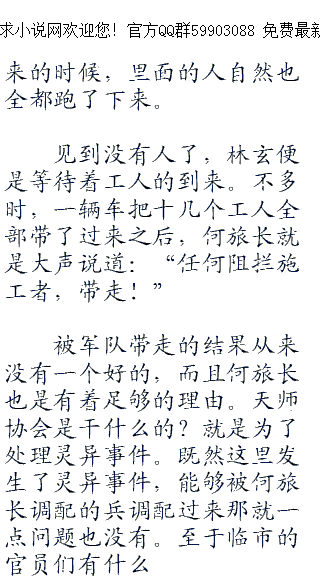 求小说网欢迎您! 官方QQ群59903088 免费最新
来的时候，里面的人自然也
全都跑了下来。
见到没有人了，林玄便
是等待着工人的到来。不多
时，一辆车把十几个工人全
部带了过来之后，何旅长就
是大声说道：“任何阻拦施
工者，带走！”
被军队带走的结果从来
没有一个好的，而且何旅长
也是有着足够的理由。天师
协会是干什么的？就是为了
处理灵异事件。既然这里发
生了灵异事件，能够被何旅
长调配的兵调配过来那就一
点问题也没有。至于临市的
官员们有什么